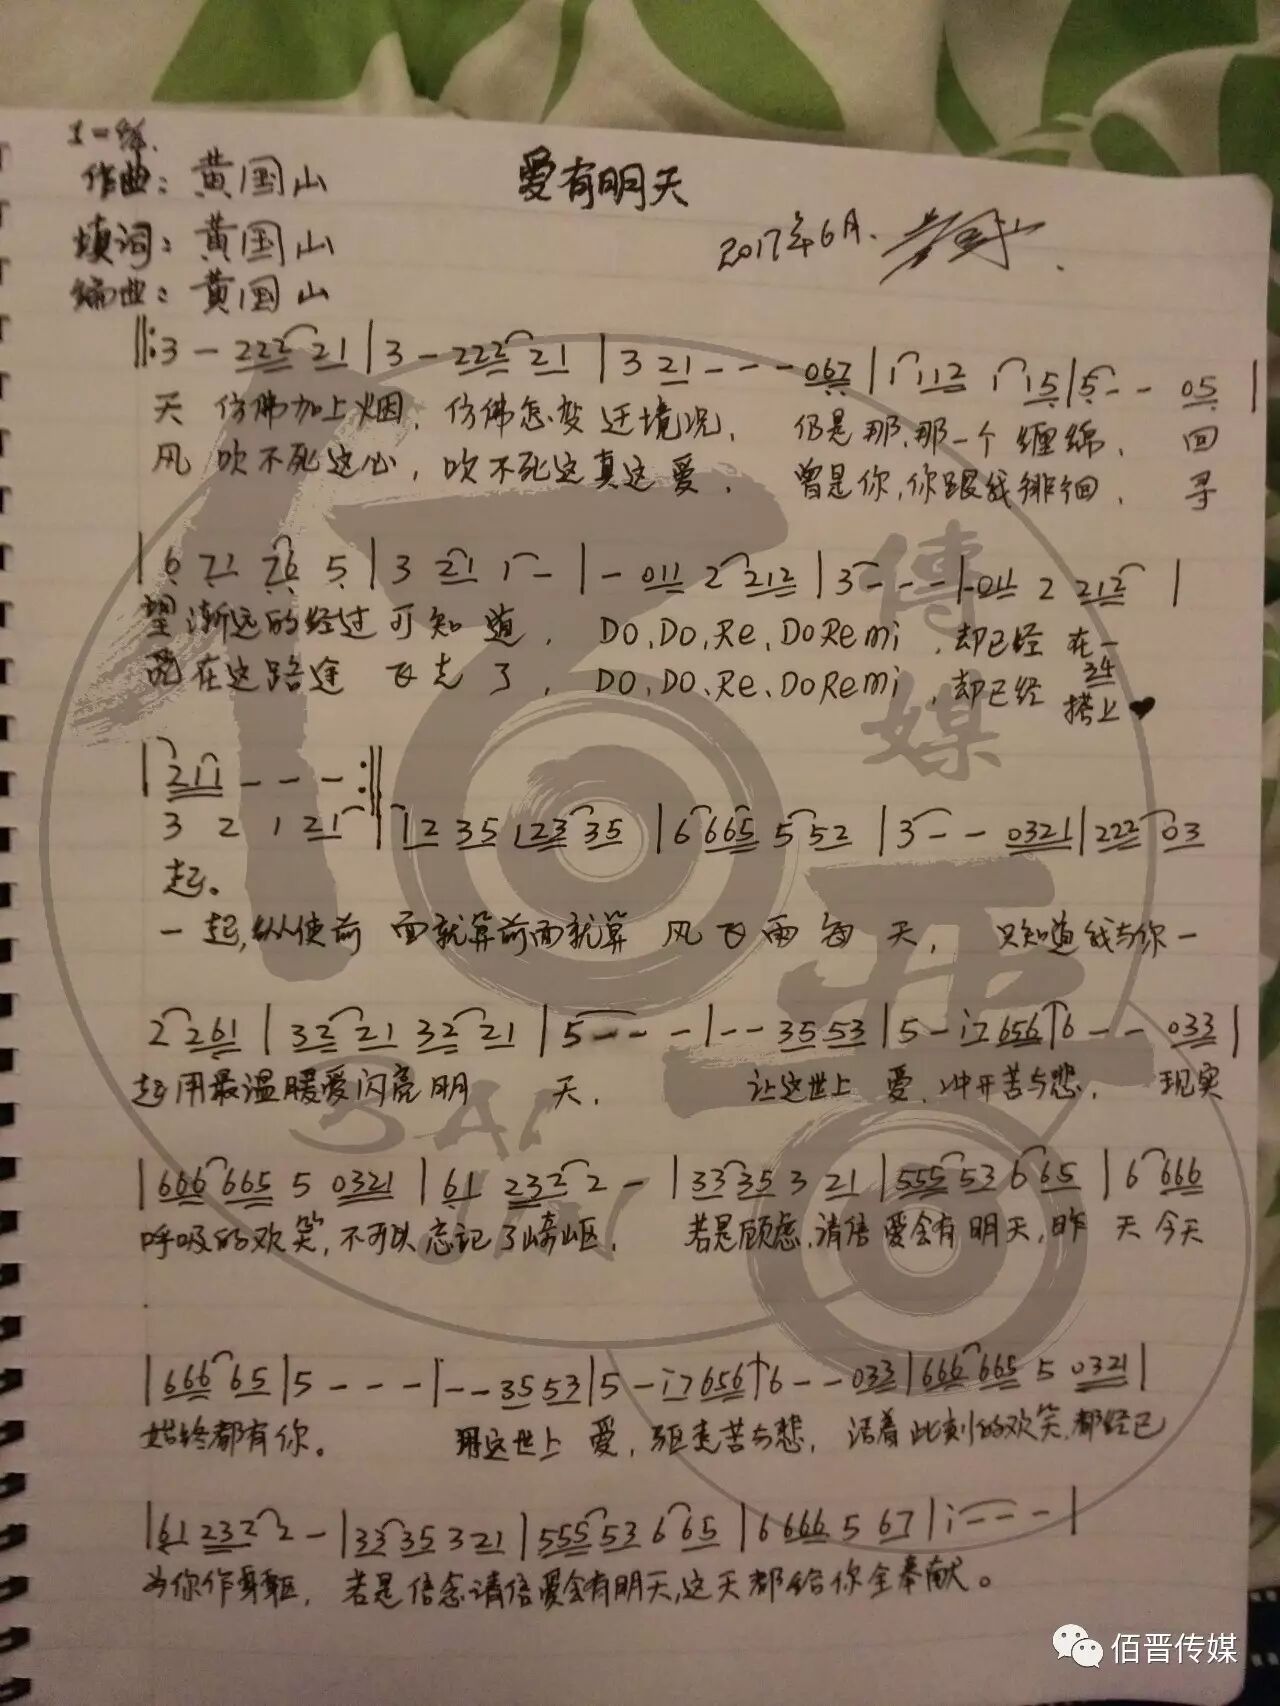 作曲：黄国山
爱有明天
填词：黄国山
2017年6月.
编曲：黄国山
‖:3 - 222 21 | 3 - 222 21 | 3 21 - - - 067 | 1 112 1 15 | 5 - - 05 |
天 仿佛加上烟，仿佛怎变迁境况，仍是那，那一个缠绵，回
风 吹不死这心，吹不死这真这爱，曾是你，你跟我徘徊，寻
| 6 71 76 5 | 3 21 1 - | - 011 2 212 | 3 - - - | -011 2 212 |
望渐远的经过可知道，Do，Do，Re，DoRemi，却已经 在一
在这路途 飞走了，Do，Do，Re，DoRemi，却已经 搭上♥
34
| 211 - - - :‖
3 2 1 21 | 12 35 123 35 | 6 665 5 52 | 3 - - 0321 | 222 03
起。
一起，纵使前面就算前面就算 风飞雨每天，只知道我与你一
2 261 | 32 21 32 21 | 5 - - - | - - 35 53 | 5 - i7 656 | 6 - - 033 |
起用最温暖爱闪亮明 天， 让这世上 爱，冲开苦与悲， 现实
| 666 665 5 0321 | 61 232 2 - | 33 35 3 21 | 555 53 6 65 | 6 666
呼吸的欢笑，不可以忘记了崎岖， 若是顾虑，请信爱会有明天，昨 天今天
| 666 65 | 5 - - - | - - 35 53 | 5 - i7 656 | 6 - - 033 | 666 665 5 0321 |
始终都有你。 用这世上 爱，驱走苦与悲，活着此刻的欢笑，都经已
| 61 232 2 - | 33 35 3 21 | 555 53 6 65 | 6 666 5 67 | i - - - |
为你作身躯，若是信念请信爱会有明天，这天都给你全奉献。
傳媒
佰晋传媒